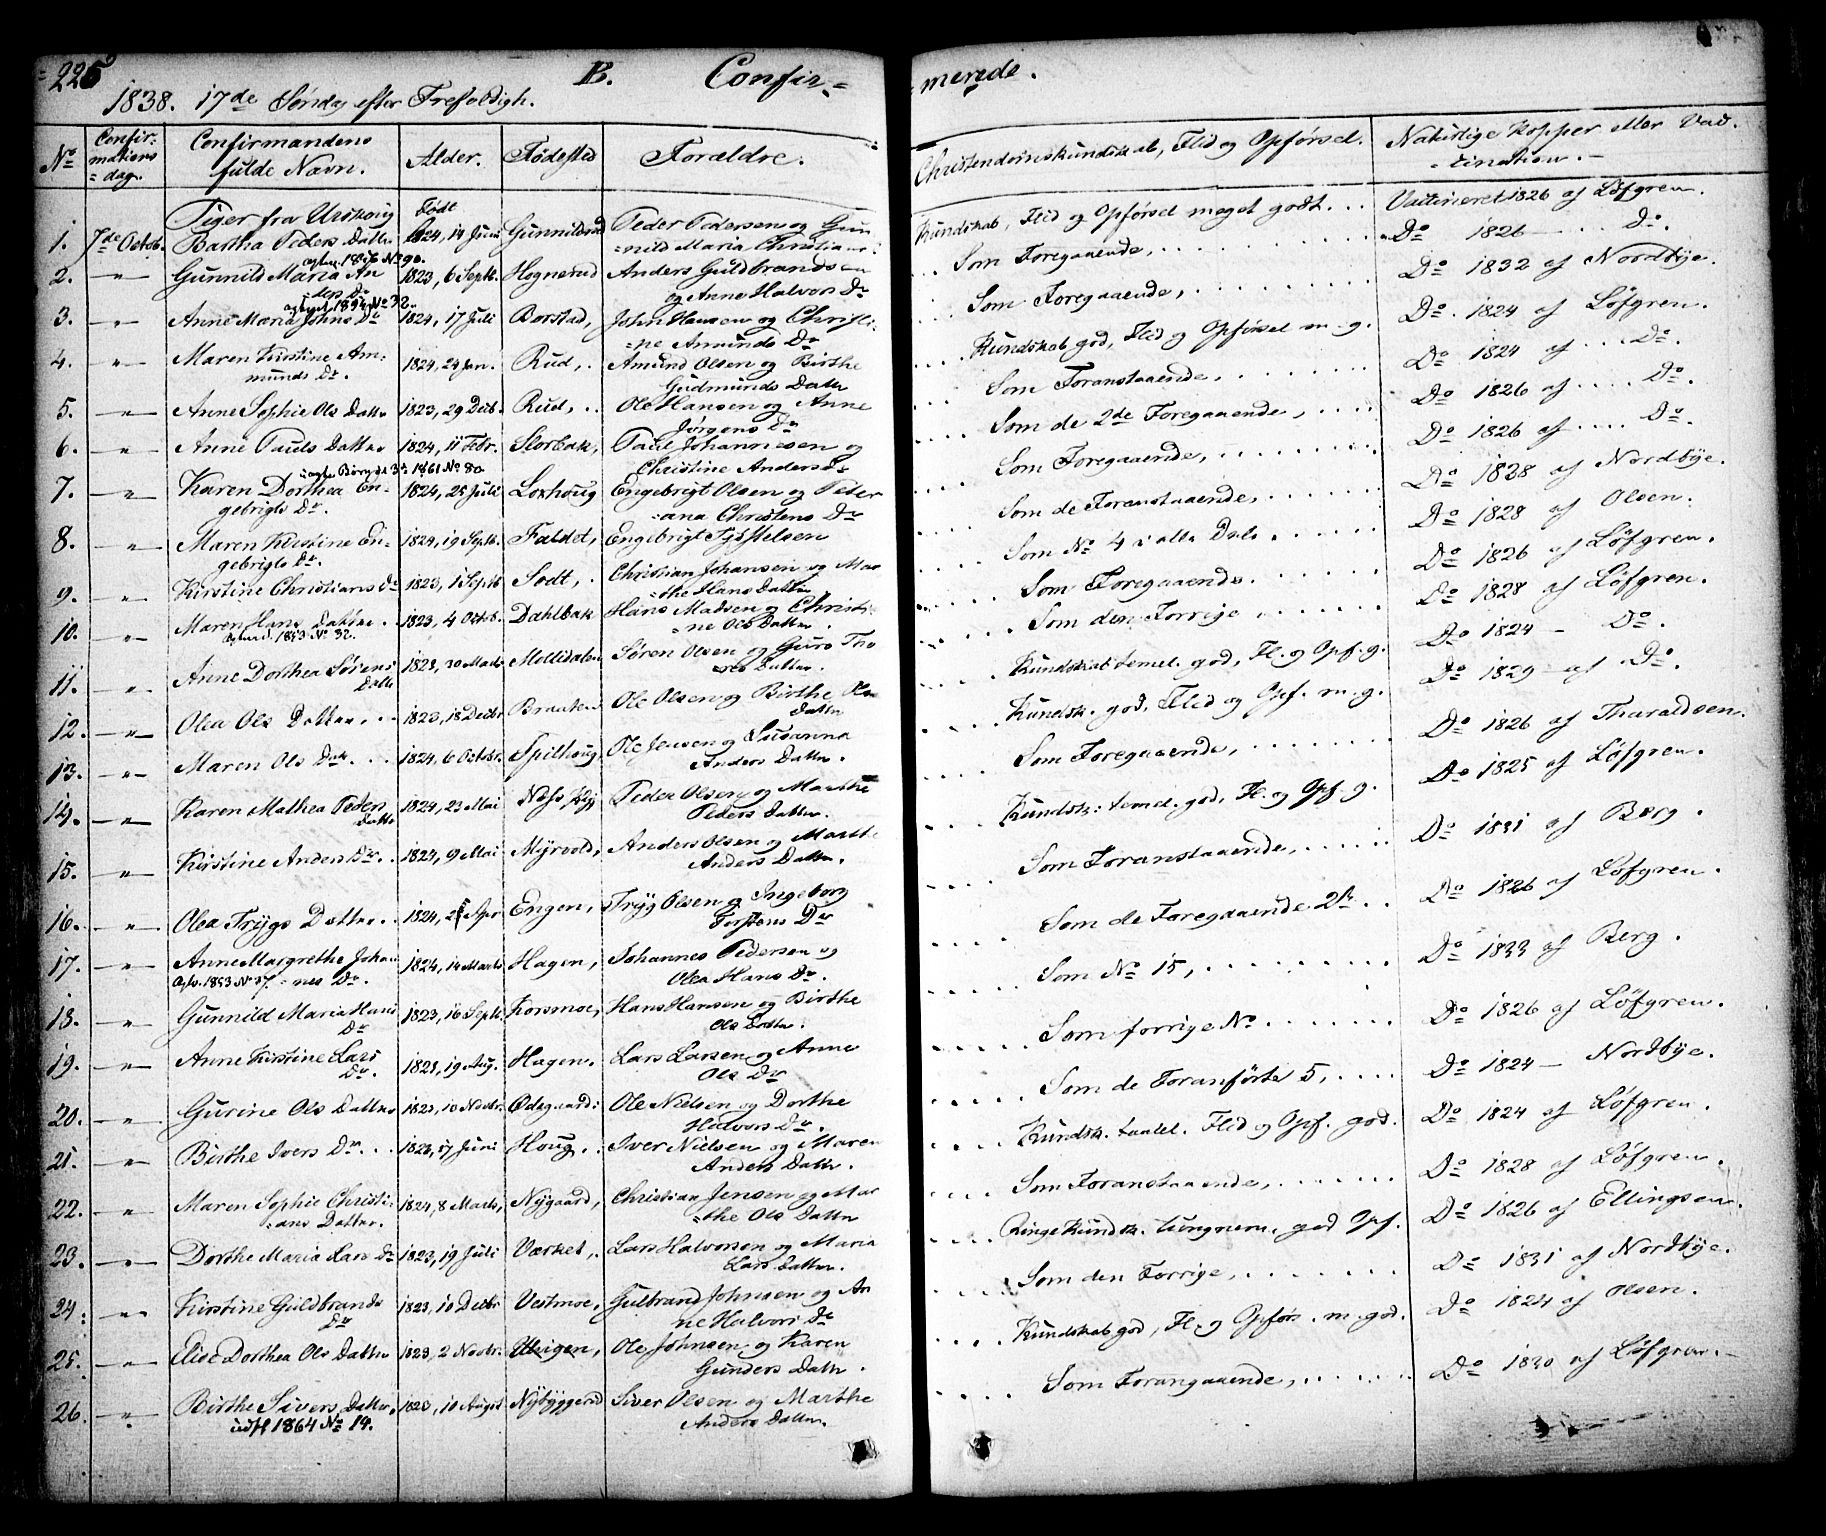 225
B. Confir-
merede.
1838. 17de Søndag efter Trefoldigh.
No
Confir-
mations
dag.
Confirmandens
fulde Navn.
Alder.
Fødested
Forældre.
Christendomskundskab, Flid og Opførsel.
Naturlige Kopper eller Vac-
cination.
Piger fra Urskoug
Født
1. 7de Octob. Bertha Peders Datter 1824, 14 Juni Gunnildrud Peder Pedersen og Gun-
nild Maria Christians
Kundskab, Flid og Opførsel meget godt... Vaccineret 1826 af Løfgren.
2. " Gunnild Maria An-
ders Dr 1823, 6 Septb. Hognerud Anders Guldbrandsen
og Anne Halvors Dr
Som Foregaaende, Do 1826 Do.
3. " Anne Maria Johns Dr 1824, 17 Juli Borstad, John Hansen og Christi-
ne Amunds Dr
Som Foregaaende, Do 1832 af Nordbye.
4. " Maren Kirstine Am-
munds Dr. 1824, 24 Jan. Rud, Amund Olsen og Birthe
Gudmunds Datter
Kundskab god, Flid og Opførsel m. g. Do. 1824 af Løfgren.
5. " Anne Sophie Ols Datter 1823, 29 Decb. Rud, Ole Hansen og Anne
Jørgens Dr
Som Foranstaaende, Do 1824 af Do.
6. " Anne Pauls Datter 1824, 11 Febr. Storbak, Paul Johannesen og
Christine Anders Dr
Som de 2de Foregaaende, Do 1826 af Do.
7. " Karen Dorthea En-
gebrigts Dr. 1824, 25 Juli Loxhoug Engebrigt Olsen og Peter-
ana Christens Dr
Som Foregaaende, Do 1826 af Do.
8. " Maren Kirstine En-
gebrigts Dr. 1824, 19 Septb. Faldet, Engebrigt
Som de Foranstaaende, Do 1838 af Nordbye.
9. " Kirstine Christians Dr 1823, 1 Septb Sodt, Christian Johansen og Mar-
the Hans Datter
Som No 4 i alle Dele. Do 1828 af Olsen.
10. " Maren Hans Datter 1823, 4 Octob. Dahlbak Hans Madsen og Christi-
ne Ols Datter.
Som Foregaaende. Do 1826 af Løfgren.
11. " Anne Dorthea Sørens
Datter 1823, 30 Marts Mollidalen Søren Olsen og Guro Tho-
res Datter.
Som den Forrige, Do 1828 af Løfgren.
12. " Olea Ols Datter 1823, 18 Decbr Ole Olsen og Birthe Ols
Datter
Kundskab temel. god, Fl. og Opf. g. Do 1824 Do.
13. " Maren Ols Datr. 1824, 6 Octobr. Spilhoug, Ole Jensen og Susanna
Anders Datter.
Kundsk. god, Flid og Opf. m. g. Do 1829 af Do.
14. " Karen Mathea Peders
Datter 1824, 23 Mai Peder Olsen og Marthe
Peders Datter.
Som Foregaaende, Do 1826 af Tharaldsen.
15. " Kirstine Anders Dr. 1824, 9 Mai Myrvold, Anders Olsen og Marthe
Anders Datter.
Kundsk: temel. god, Fl. og Opf. g. Do 1825 af Løfgren.
16. " Olea Trygs Datter 1824, Apr Engen, Tryg Olsen og Ingeborg
Torstens Dr
Som Foranstaaende, Do 1831 af Berg.
17. " Anne Margrethe Johan-
nes Dr. 1824, 14 Marts Hagen, Johannes Pedersen og
Olea Hans Dr.
Som de Foregaaende 2de Do 1826 af Løfgren.
18. " Gunnild Maria Hans
Dr 1823, 16 Septb. Korsmoe, Hans Hansen og Birthe
Ols Datter.
Som No 15, Do 1833 af Berg.
19. " Anne Kirstine Lars
Dr. 1823, 19 Aug. Hagen, Lars Larsen og Anne
Ols Dr
Som forrige No. Do 1826 af Løfgren.
20. " Gurine Ols Datter 1823, 10 Novbr. Ødegaard, Ole Nielsen og Dorthe
Halvors Dr.
Som de Foranførte 5, Do 1824 Nordbye.
21. " Birthe Ivers Dr. 1823, 17 Juni Houg Iver Nielsen og Maren
Anders Datter.
Kundsk. taalel. Flid og Opf. god. Do 1824 af Løfgren.
22. " Maren Sophie Christi-
ans Datter. 1824, 8 Marts, Nygaard, Christian Jensen og Mar-
the Ols Datter
Som Foranstaaende, Do 1828 af Løfgren.
23. " Dorthe Maria Lars Dr 1823, 19 Juli Værket, Lars Halvorsen og Maria
Lars Datter.
Ringe Kundsk. tungnem. god Opf. Do 1826 af Ellingsen.
24. " Kirstine Guldbrands
Dr 1823, 10 Decbr Vestmoe, Gulbrand Johnsen og An-
ne Halvors Dr
Som den Forrige, Do 1831 af Nordbye.
25. " Elise Dorthea Ols Datter 1823, 2 Novbr. Ole Johnsen og Karen
Gunders Datter.
Kundskab god, Fl. og Opførs. m. god. Do 1824 af Olsen.
26. " Birthe Sivers Datter, 1823, 10 August Nybyggerud Siver Olsen og Marthe
Anders Datter.
Som Forangaaende, Do 1830 af Løfgren.
udst 1864 No 14.